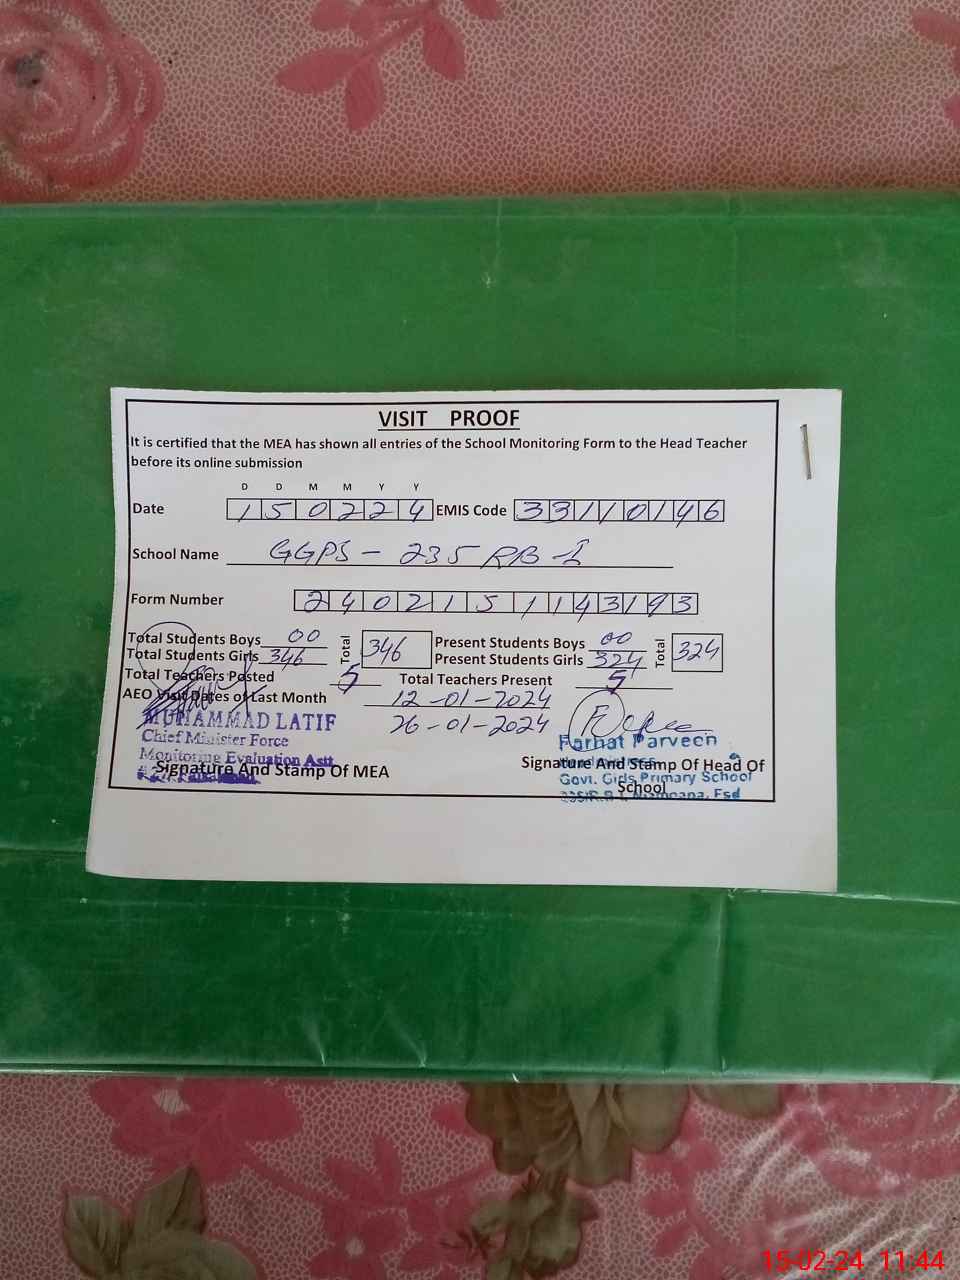 VISIT PROOF
It is certified that the MEA has shown all entries of the School Monitoring Form to the Head Teacher
before its online submission
D D M M Y Y
Date 1 5 0 2 2 4 EMIS Code 3 3 1 1 0 1 4 6
School Name GGPS - 235 RB-I
Form Number 2 4 0 2 1 5 1 1 4 3 1 9 3
Total Students Boys 00 Total 346 Present Students Boys 00 Total 324
Total Students Girls 346 Present Students Girls 324
Total Teachers Posted 5 Total Teachers Present 5
AEO Visit Dates of Last Month 12-01-2024
26-01-2024
MUHAMMAD LATIF
Chief Minister Force
Monitoring Evaluation Astt
Signature And Stamp Of MEA
Farhat Parveen
Signature And Stamp Of Head Of
School
Govt. Girls Primary School
Fsd
15-02-24 11:44